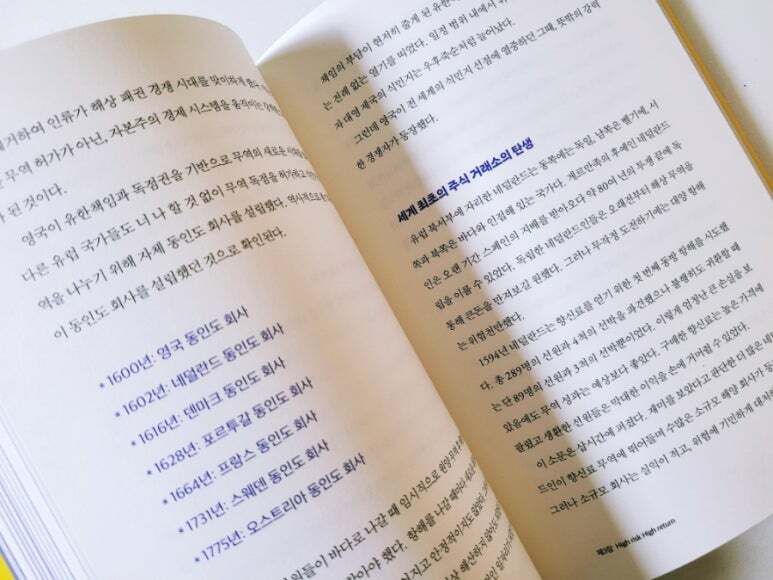 인류가 해상 패권 경쟁 시대를 맞이하게
무역 허가가 아닌, 자본주의 경제 시스템을
된 것이다.
영국이 유한책임과 독점권을 기반으로 무역의 새로운
다른 유럽 국가들도 너 나 할 것 없이 무역 독점을 허가하고
역을 나누기 위해 자체 동인도 회사를 설립했다.
이 동인도 회사를 설립했던 것으로 확인된다.
* 1600년: 영국 동인도 회사
* 1602년: 네덜란드 동인도 회사
* 1616년: 덴마크 동인도 회사
* 1628년: 포르투갈 동인도 회사
* 1664년: 프랑스 동인도 회사
* 1731년: 스웨덴 동인도 회사
* 1775년: 오스트리아 동인도 회사
바다로 나갈 때 임시적으로
했다. 항해를 나갈 때마다
책임의 부담이 현저히 줄게 된 유한
는 전례 없는 열기를 띠었다. 일정 범위 내에서
자 대영 제국의 식민지는 우후죽순처럼 늘어났다.
그런데 영국이 전 세계의 식민지 선점에 열중하던 그때, 뜻밖의 강력
한 경쟁자가 등장했다.
세계 최초의 주식 거래소의 탄생
유럽 북서부에 자리한 네덜란드는 동쪽에는 독일, 남쪽은 벨기에, 서
쪽과 북쪽은 바다와 인접해 있는 국가다. 게르만족의 후예인 네덜란드
인은 오랜 기간 스페인의 지배를 받아오다 약 80여 년의 투쟁 끝에 독
립을 이룰 수 있었다. 독립한 네덜란드인들은 오래전부터 해상 무역을
통해 큰돈을 만져보길 원했다. 그러나 무작정 도전하기에는 대양 항해
는 위험천만했다.
1594년 네덜란드는 향신료를 얻기 위한 첫 번째 동방 항해를 시도했
다. 총 289명의 선원과 4척의 선박을 파견했으나 불행히도 귀환할 때
는 단 89명의 선원과 3척의 선박뿐이었다. 이렇게 엄청난 큰 손실을 보
았음에도 무역 성과는 예상보다 좋았다. 구매한 향신료는 높은 가격에
팔렸고 생환한 선원들은 막대한 이익을 손에 거머쥘 수 있었다.
이 소문은 삽시간에 퍼졌다. 재미를 보았다고 판단한 더 많은 네
드인이 향신료 무역에 뛰어들며 수많은 소규모 해양 회사가
그러나 소규모 회사는 실익이 적고, 위험에 기민하게
제3장 High risk High return